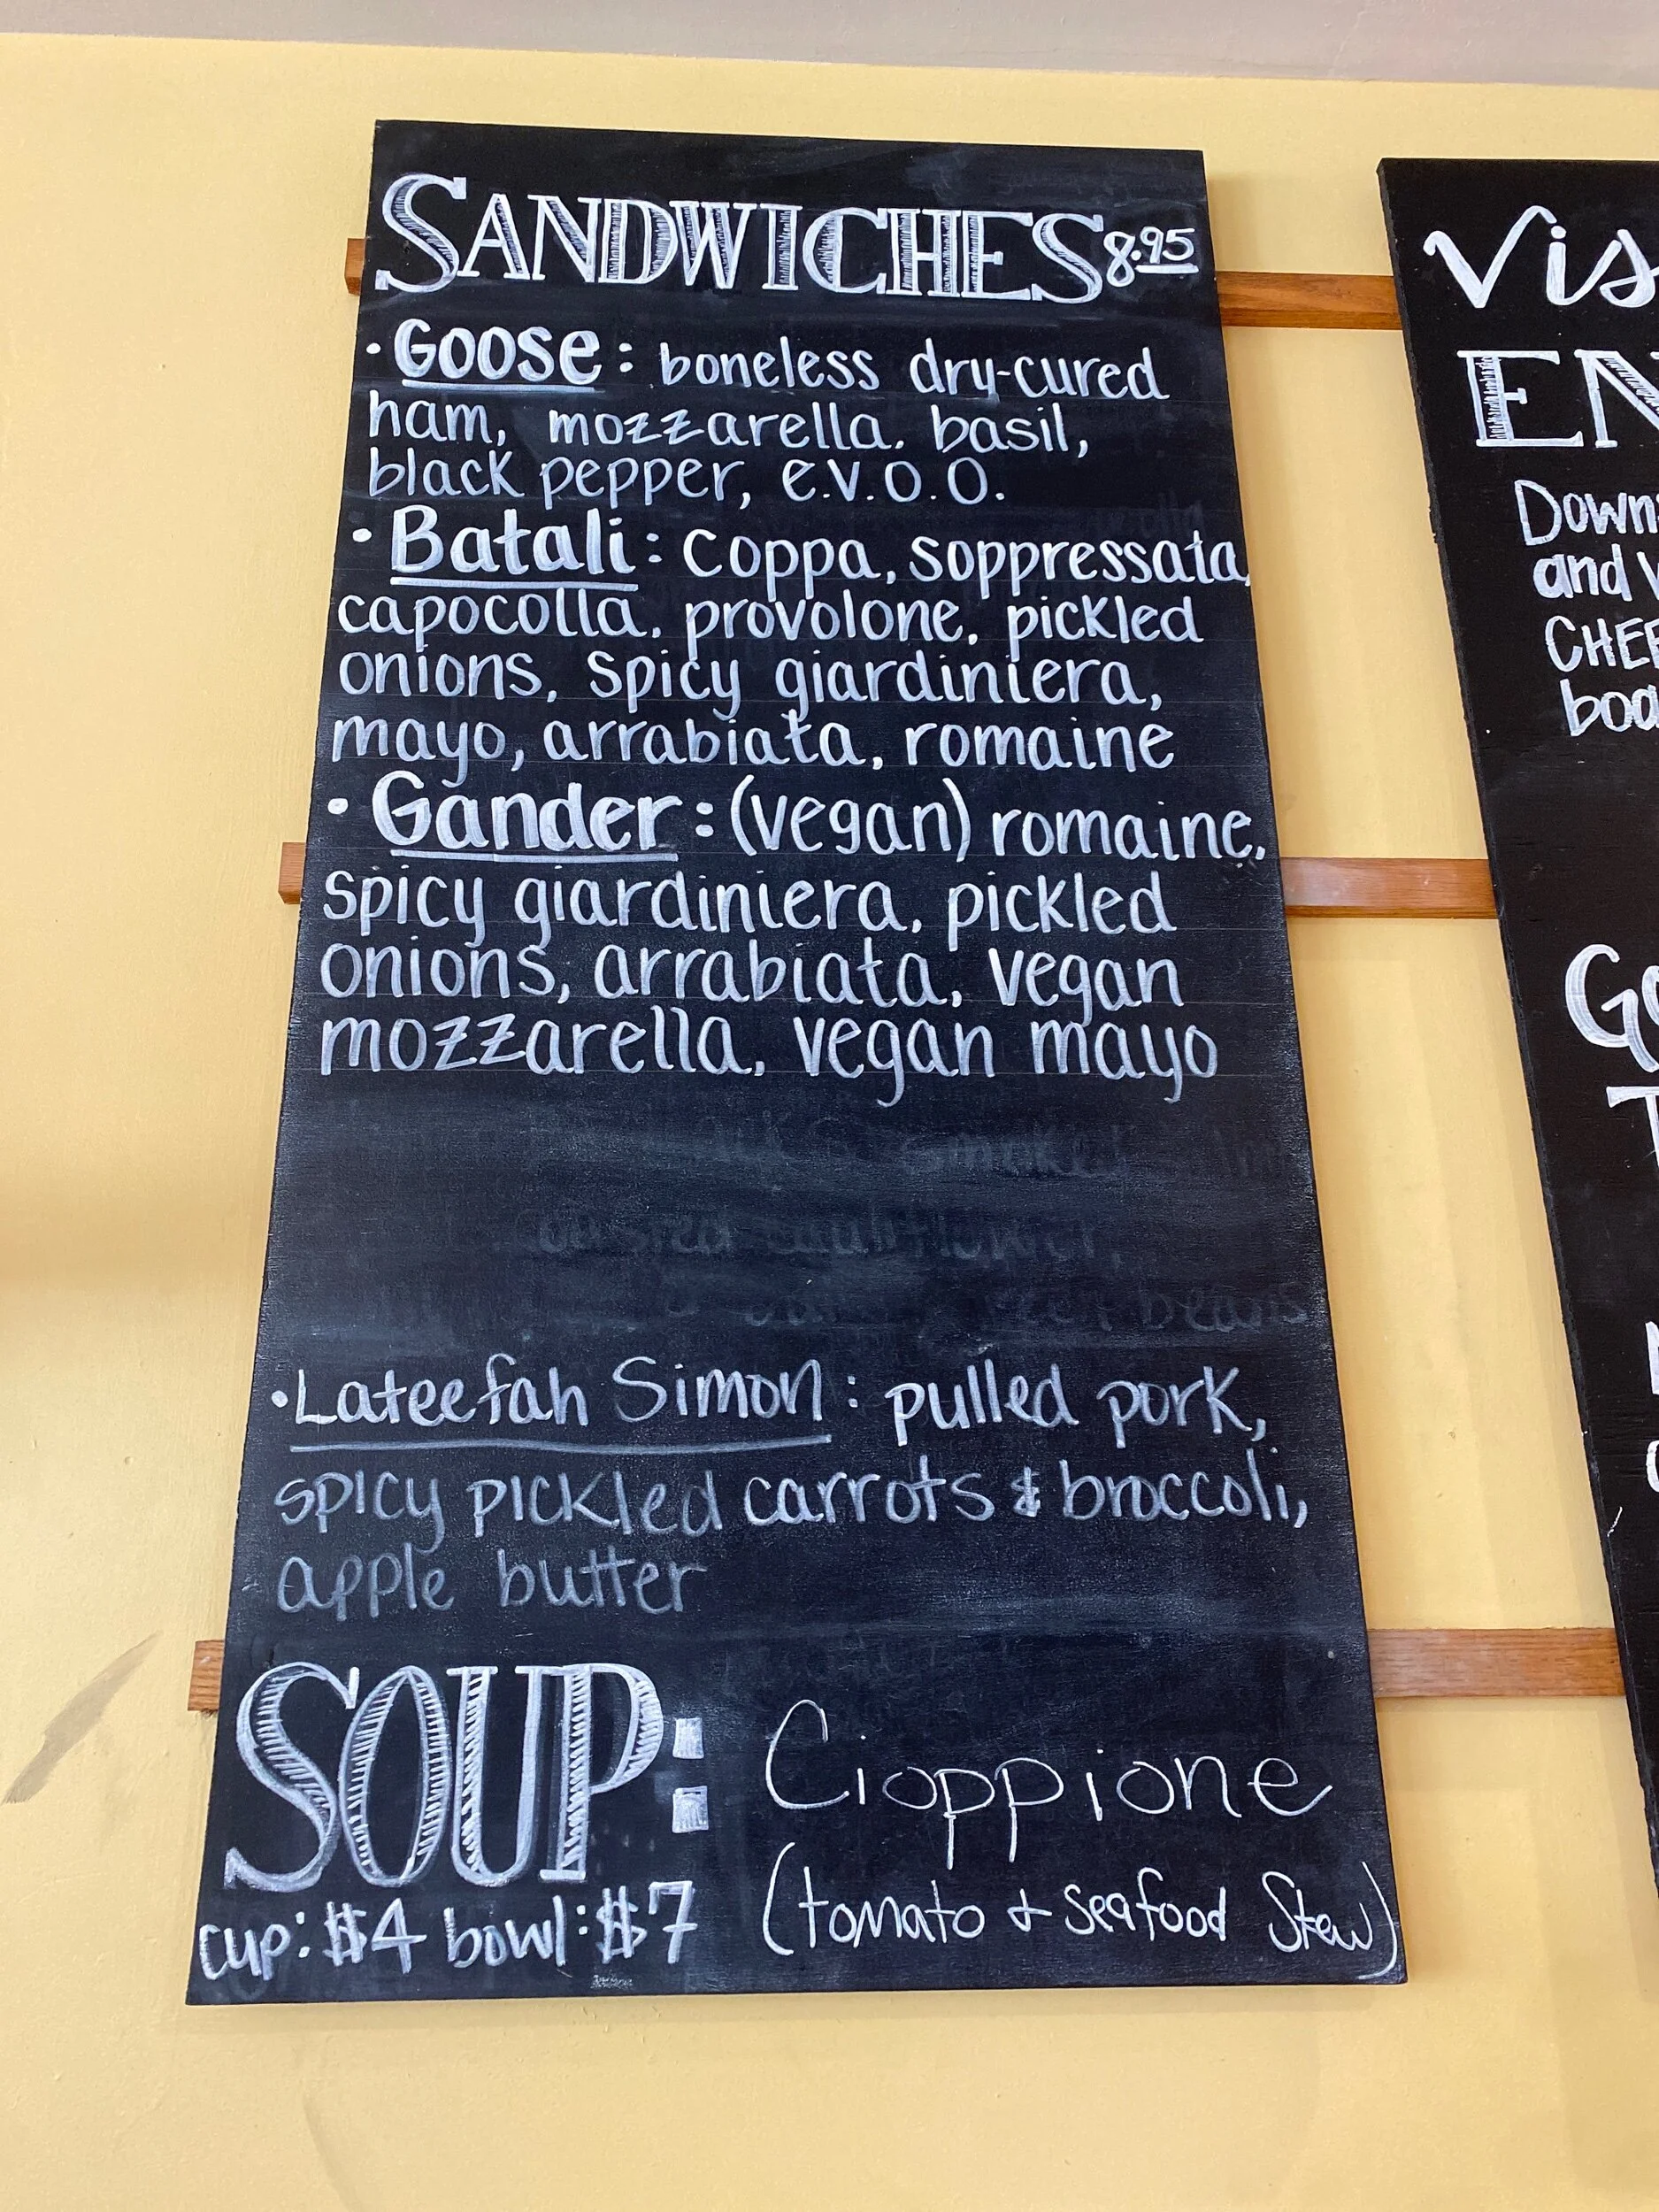 SANDWICHES 8.95
• Goose: boneless dry-cured
ham, mozzarella, basil,
black pepper, e.v.o.o.
• Batali: coppa, soppressata,
capocolla, provolone, pickled
onions, spicy giardiniera,
mayo, arrabiata, romaine
• Gander: (vegan) romaine,
spicy giardiniera, pickled
onions, arrabiata, vegan
mozzarella, vegan mayo
• Lateefah Simon: pulled pork,
spicy pickled carrots & broccoli,
apple butter
SOUP: Cioppione
(tomato + seafood Stew)
cup: $4 bowl: $7
Vis
EN
Down
and
CHEE
boa